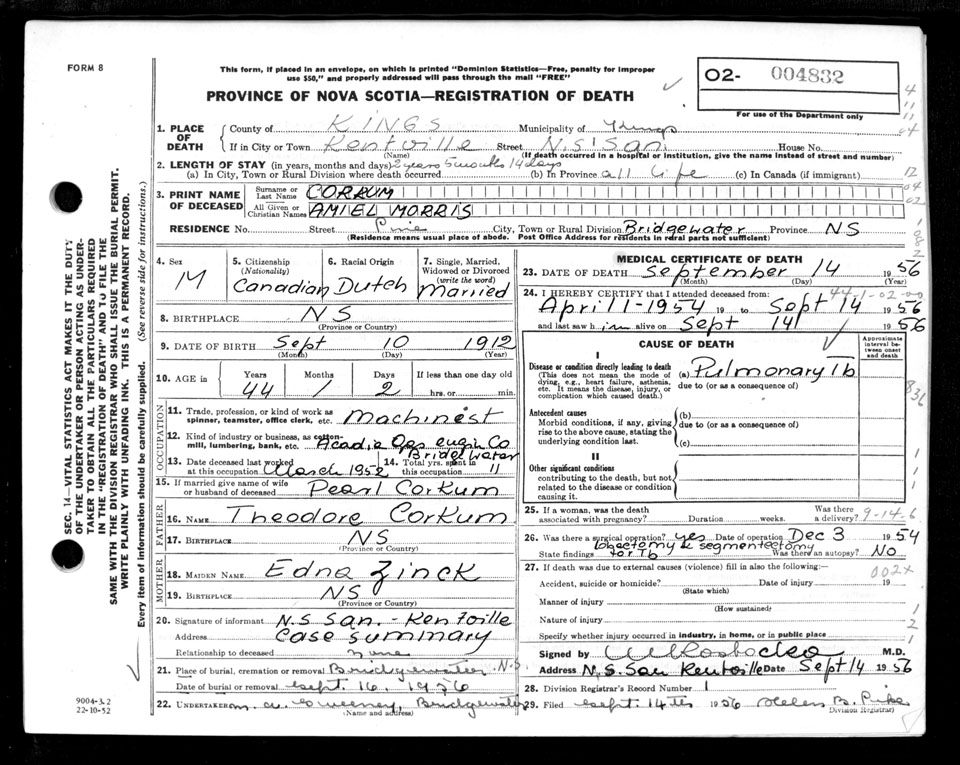 FORM 8
This form, if placed in an envelope, on which is printed "Dominion Statistics—Free, penalty for improper
use $50," and properly addressed will pass through the mail "FREE"
PROVINCE OF NOVA SCOTIA—REGISTRATION OF DEATH
O2- 004832
For use of the Department only
1. PLACE OF DEATH
County of KINGS Municipality of Kings
If in City or Town Kentville Street N.S. San. House No.
(Name) (If death occurred in a hospital or institution, give the name instead of street and number)
2. LENGTH OF STAY (in years, months and days) 2 years 5 months 14 days
(a) In City, Town or Rural Division where death occurred (b) In Province all life (c) In Canada (if immigrant)
3. PRINT NAME OF DECEASED
Surname or Last Name CORKUM
All Given or Christian Names AMIEL MORRIS
RESIDENCE No. Street Pine City, Town or Rural Division Bridgewater Province NS
(Residence means usual place of abode. Post Office Address for residents in rural parts not sufficient)
4. Sex M
5. Citizenship (Nationality) Canadian
6. Racial Origin Dutch
7. Single, Married, Widowed or Divorced (write the word) Married
8. BIRTHPLACE NS
(Province or Country)
9. DATE OF BIRTH Sept 10 1912
(Month) (Day) (Year)
10. AGE in Years 44 Months 1 Days 2 If less than one day old hrs. or min.
OCCUPATION
11. Trade, profession, or kind of work as spinner, teamster, office clerk, etc. Machinest
12. Kind of industry or business, as cotton-mill, lumbering, bank, etc. Acadia Gas Engin Co Bridgewater
13. Date deceased last worked at this occupation March 1952
14. Total yrs. spent in this occupation 11
15. If married give name of wife or husband of deceased Pearl Corkum
FATHER
16. NAME Theodore Corkum
17. BIRTHPLACE NS
(Province or Country)
MOTHER
18. MAIDEN NAME Edna Zinck
19. BIRTHPLACE NS
(Province or Country)
20. Signature of informant N.S San. - Kentville
Address Case summary
Relationship to deceased none
21. Place of burial, cremation or removal Bridgewater N.S.
Date of burial or removal Sept. 16, 1956
22. UNDERTAKER Sweeney, Bridgewater
(Name and address)
MEDICAL CERTIFICATE OF DEATH
23. DATE OF DEATH September 14 1956
(Month) (Day) (Year)
24. I HEREBY CERTIFY that I attended deceased from:
April 1-1954 19 to Sept 14 1956
and last saw him alive on Sept 14 1956
CAUSE OF DEATH
Approximate interval between onset and death
I
Disease or condition directly leading to death (a) Pulmonary Tb
(This does not mean the mode of dying, e.g., heart failure, asthenia, etc. It means the disease, injury, or complication which caused death.)
due to (or as a consequence of)
Antecedent causes
Morbid conditions, if any, giving rise to the above cause, stating the underlying condition last.
(b)
due to (or as a consequence of)
(c)
II
Other significant conditions
contributing to the death, but not related to the disease or condition causing it.
25. If a woman, was the death associated with pregnancy? Duration weeks. Was there a delivery? 9-14-6
26. Was there a surgical operation? yes Date of operation Dec 3 1954
State findings lobectomy & segmentectomy for Tb Was there an autopsy? NO
27. If death was due to external causes (violence) fill in also the following:— 002x
Accident, suicide or homicide? Date of injury 19
(State which)
Manner of injury
(How sustained)
Nature of injury
Specify whether injury occurred in industry, in home, or in public place
Signed by M.D.
Address N.S. San Kentville Date Sept 14 1956
28. Division Registrar's Record Number 1
29. Filed Sept. 14th 1956 Helen B. Pike
(Division Registrar)
SEC. 14—VITAL STATISTICS ACT MAKES IT THE DUTY
OF THE UNDERTAKER OR PERSON ACTING AS UNDER-
TAKER TO OBTAIN ALL THE PARTICULARS REQUIRED
IN THE "REGISTRATION OF DEATH" AND TO FILE THE
SAME WITH THE DIVISION REGISTRAR WHO SHALL ISSUE THE BURIAL PERMIT.
WRITE PLAINLY WITH UNFADING INK. THIS IS A PERMANENT RECORD.
Every item of information should be carefully supplied. (See reverse side for instructions.)
9004-3.2
22-10-52